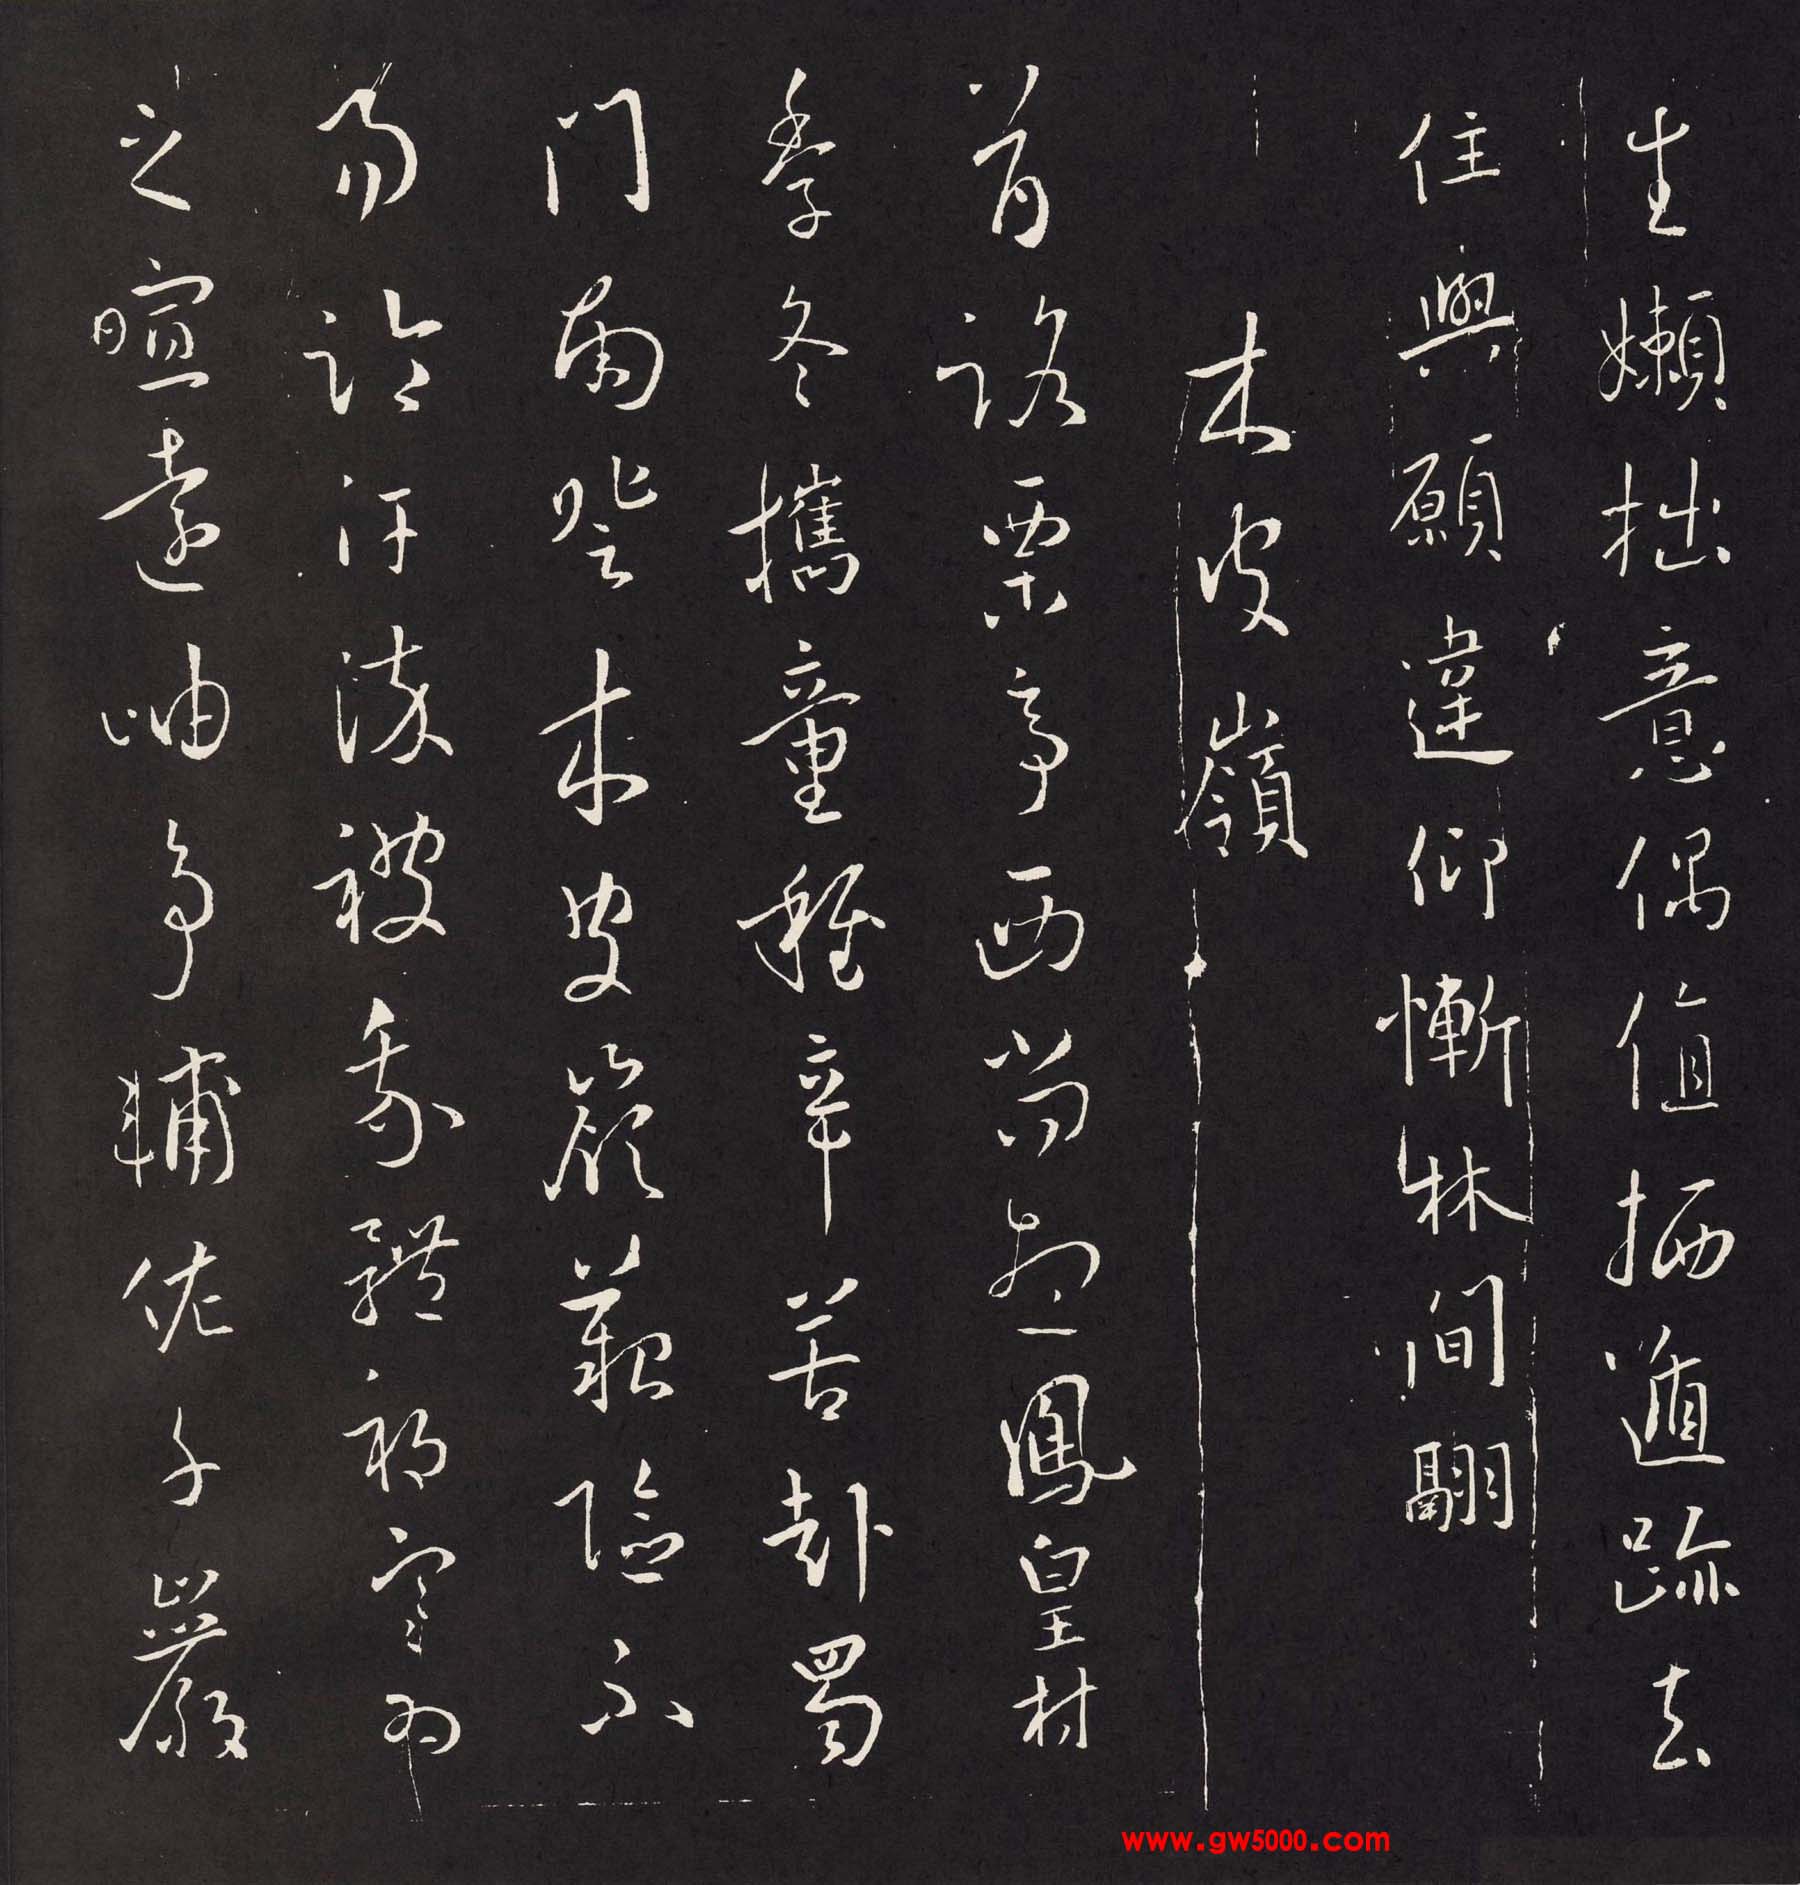 生嬾拙意偶值栖遁跡去
住與願違仰慚林間翮
木皮嶺
首路栗亭西尚想鳳皇村
季冬攜童稚辛苦赴蜀
門南登木皮嶺艱險不
易論汗流被我體祁寒為
之暄遠岫爭輔佐千巖
www.gw5000.com